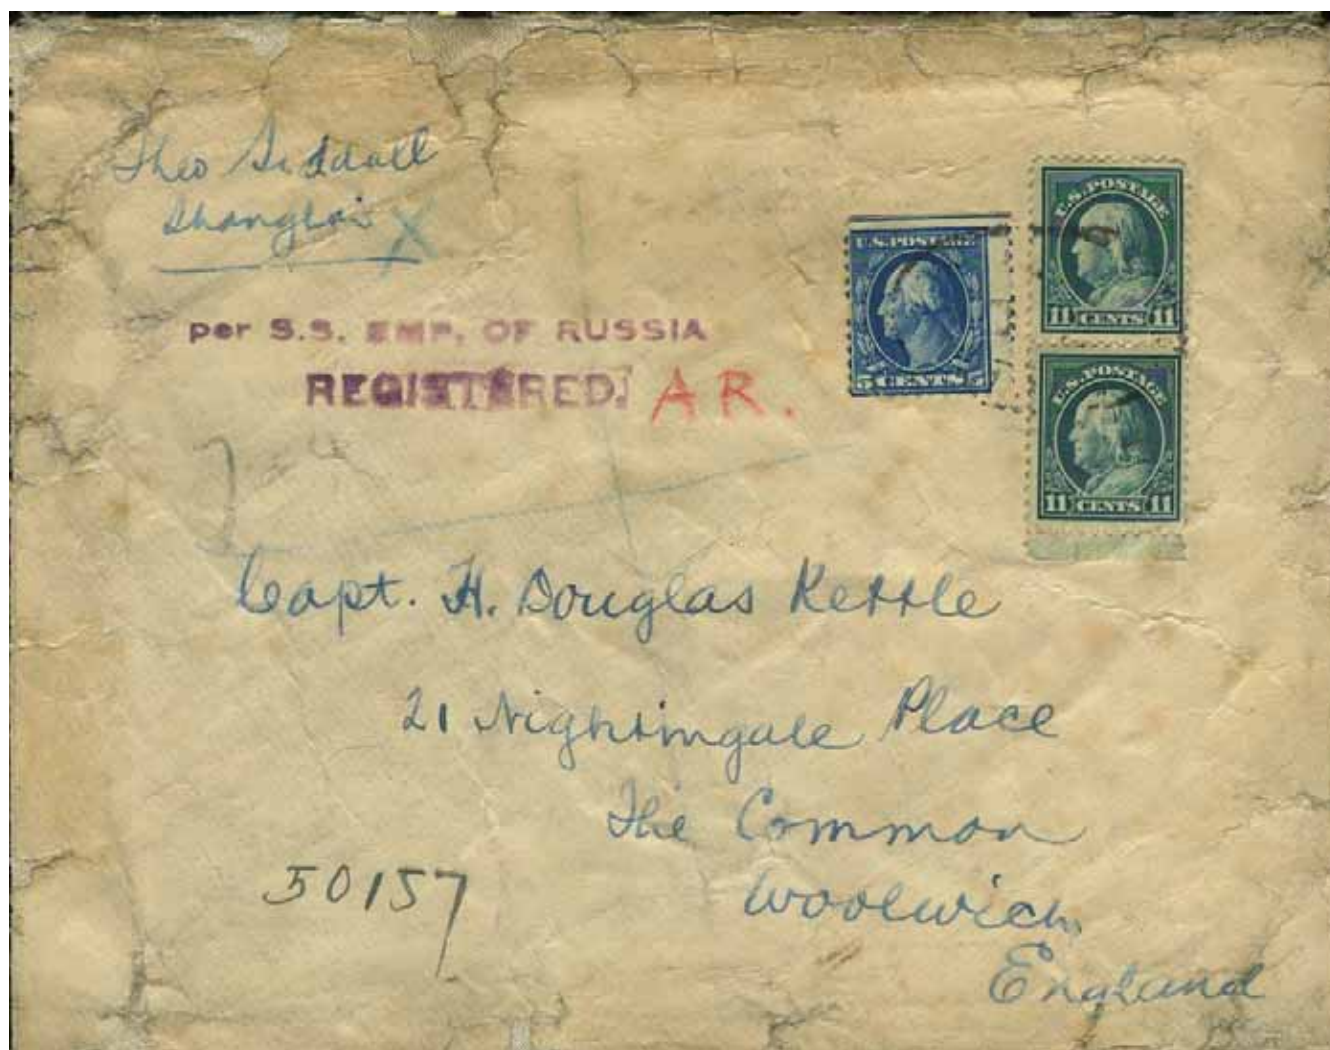 Theo Siddall
Shanghai X
per S.S. EMP. OF RUSSIA
REGISTERED. AR.
U.S. POSTAGE
5 CENTS 5
U.S. POSTAGE
11 CENTS 11
U.S. POSTAGE
11 CENTS 11
Capt. H. Douglas Kettle
21 Nightingale Place
The Common
Woolwich,
England
50157